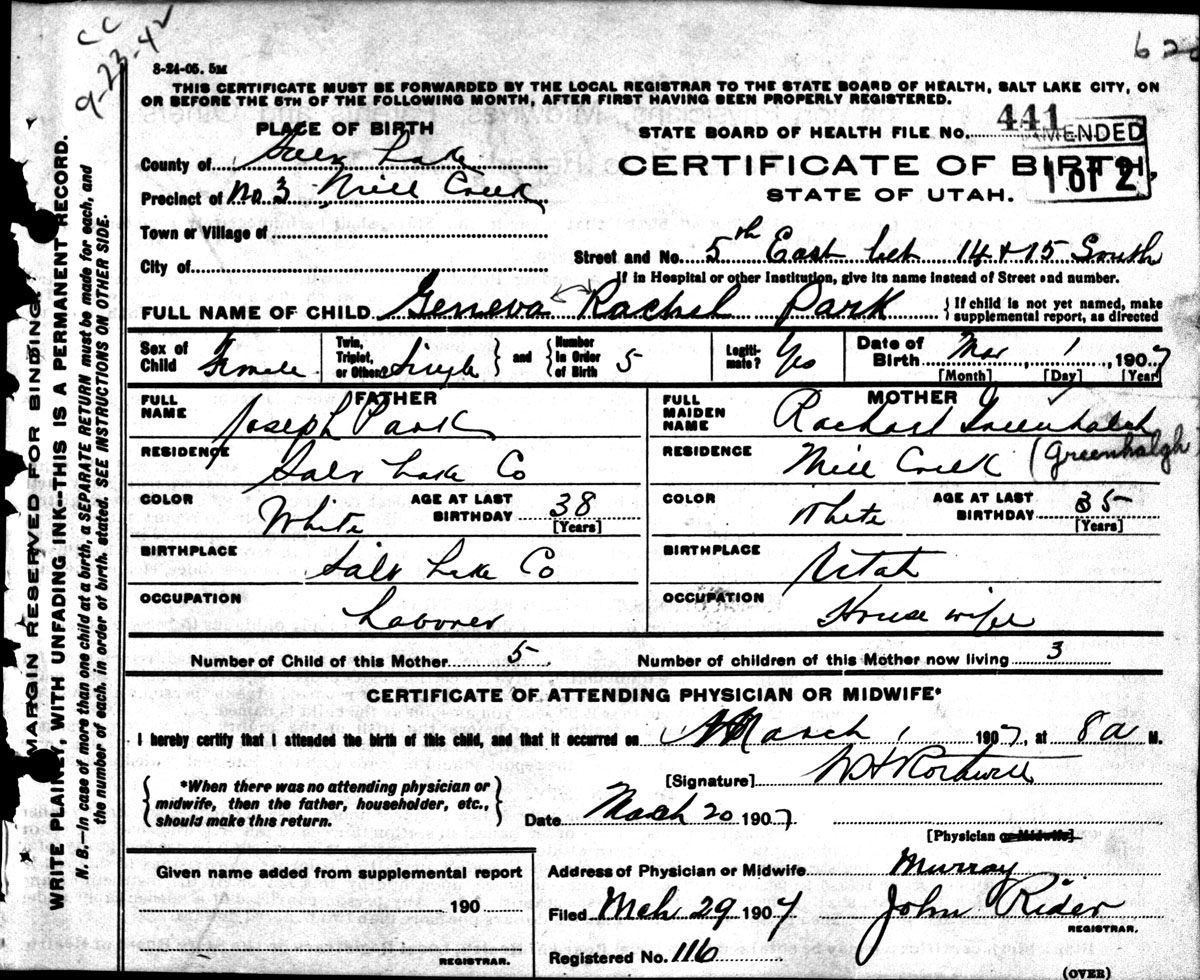 CC
9-23-42
620
8-24-05. 5M
THIS CERTIFICATE MUST BE FORWARDED BY THE LOCAL REGISTRAR TO THE STATE BOARD OF HEALTH, SALT LAKE CITY, ON
OR BEFORE THE 5TH OF THE FOLLOWING MONTH, AFTER FIRST HAVING BEEN PROPERLY REGISTERED.
PLACE OF BIRTH
County of Salt Lake
Precinct of No 3 Mill Creek
Town or Village of
City of
STATE BOARD OF HEALTH FILE No. 441
AMENDED
1 OF 2
CERTIFICATE OF BIRTH.
STATE OF UTAH.
Street and No. 5th East bet 14 & 15 South
If in Hospital or other Institution, give its name instead of Street and number.
FULL NAME OF CHILD Geneva Rachel Park { If child is not yet named, make
supplemental report, as directed
Sex of Child Female
Twin, Triplet, or Other Single } and { Number in Order of Birth 5
Legiti-mate? Yes
Date of Birth Mar 1, 1907
[Month] [Day] [Year]
FATHER
FULL NAME Joseph Park
RESIDENCE Salt Lake Co
COLOR White AGE AT LAST BIRTHDAY 38
[Years]
BIRTHPLACE Salt Lake Co
OCCUPATION Laborer
MOTHER
FULL MAIDEN NAME Rachael Greenhalch
(Greenhalgh)
RESIDENCE Mill Creek
COLOR White AGE AT LAST BIRTHDAY 35
[Years]
BIRTHPLACE Utah
OCCUPATION House wife
Number of Child of this Mother 5 Number of children of this Mother now living 3
CERTIFICATE OF ATTENDING PHYSICIAN OR MIDWIFE*
I hereby certify that I attended the birth of this child, and that it occurred on March 1 1907, at 8 a M.
{ *When there was no attending physician or
midwife, then the father, householder, etc.,
should make this return. }
[Signature] W H Rothwell
Date March 20 1907
[Physician or Midwife]
Given name added from supplemental report
190
REGISTRAR.
Address of Physician or Midwife Murray
Filed Mch 29 1907 John Rider
REGISTRAR.
Registered No. 116
(OVER)
MARGIN RESERVED FOR BINDING.
WRITE PLAINLY, WITH UNFADING INK--THIS IS A PERMANENT RECORD.
N. B.--In case of more than one child at a birth, a SEPARATE RETURN must be made for each, and
the number of each, in order of birth, stated. SEE INSTRUCTIONS ON OTHER SIDE.